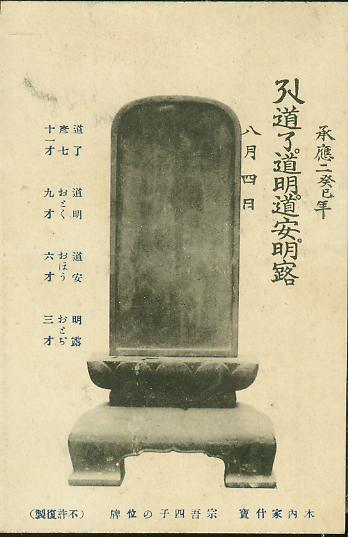 承應二癸巳年
道了道明道安明露
八月四日
道了
彦七
十一才
道明
おとく
九才
道安
おほう
六才
明露
おとぢ
三才
木内家什寶 宗吾四子の位牌 (不許復製)